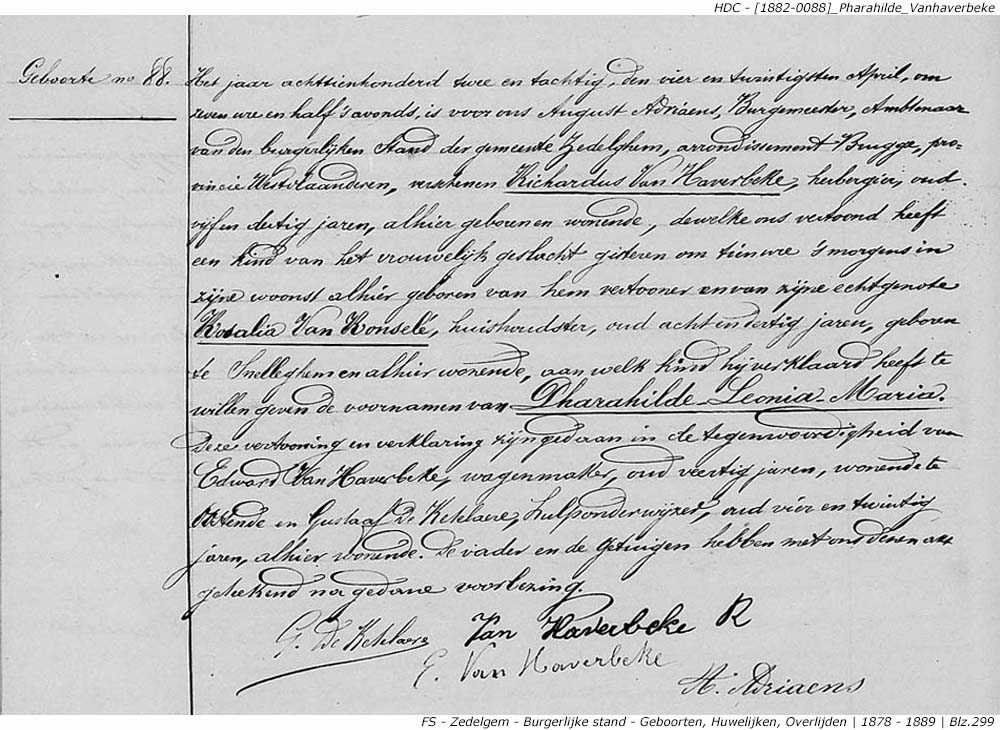 HDC - [1882-0088]_Pharahilde_Vanhaverbeke
Geboorte no 88.
Het jaar achttienhonderd twee en tachtig, den vier en twintigsten April, om
zeven ure en half 's avonds, is voor ons August Adriaens, Burgemeester, Ambtenaar
van den burgerlijken Stand der gemeente Zedelghem, arrondissement Brugge, pro-
vincie Westvlaanderen, verschenen Richardus Van Haverbeke, herbergier, oud
vijf en dertig jaren, alhier geboren en wonende, dewelke ons vertoond heeft
een kind van het vrouwelijk geslacht gisteren om tien ure 's morgens in
zijne woonst alhier geboren van hem vertooner en van zijne echtgenote
Rosalia Van Ronselé, huishoudster, oud acht en dertig jaren, geboren
te Snelleghem en alhier wonende, aan welk kind hij verklaard heeft te
willen geven de voornamen van Pharahilde Leonia Maria.
Deze vertooning en verklaring zijn gedaan in de tegenwoordigheid van
Edward Van Haverbeke, wagenmaker, oud veertig jaren, wonende te
Ostende en Gustaaf De Ketelaere, hulponderwijzer, oud vier en twintig
jaren, alhier wonende. De vader en de getuigen hebben met ons dezen akt
geteekend na gedane voorlezing.
G. De Ketelaere Van Haverbeke R
E. Van Haverbeke
A. Adriaens
FS - Zedelgem - Burgerlijke stand - Geboorten, Huwelijken, Overlijden | 1878 - 1889 | Blz.299